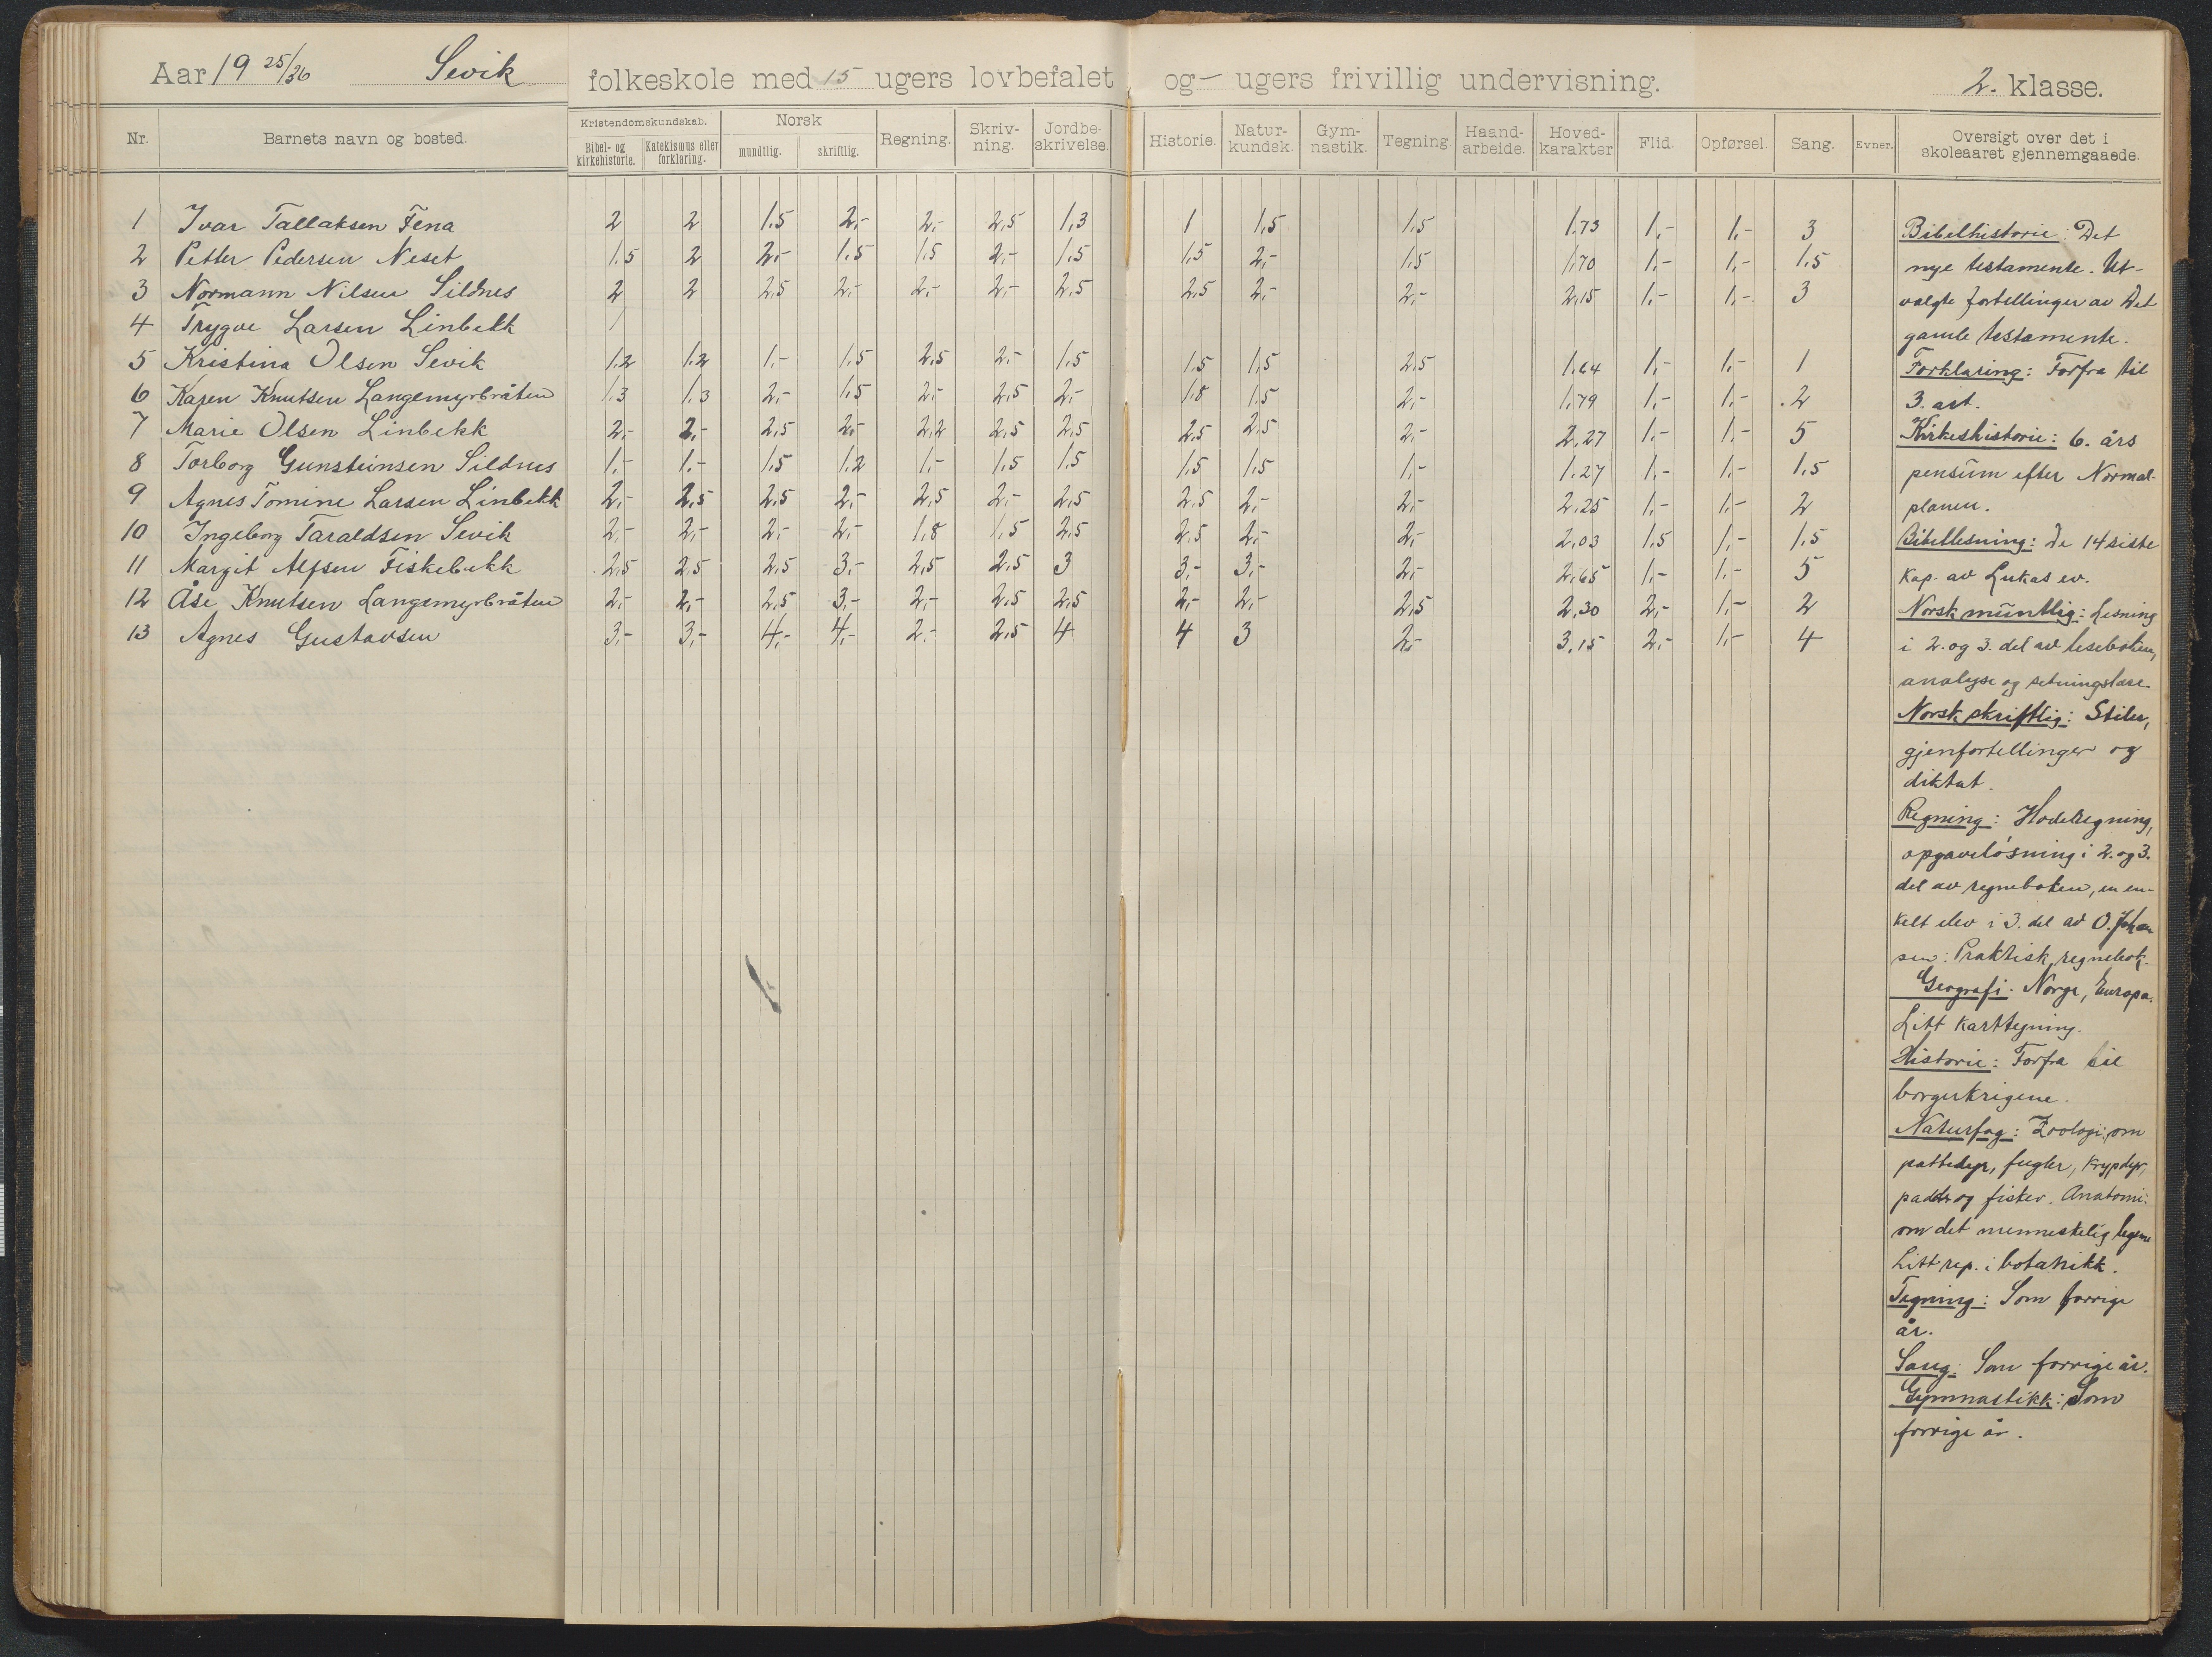 Aar 19 25/26 Sevik folkeskole med 15 ugers lovbefalet og - ugers frivillig undervisning. 2. klasse.
Nr. Barnets navn og bosted. Kristendomskundskab. Bibel- og kirkehistorie. Katekismus eller forklaring. Norsk mundtlig. skriftlig. Regning. Skriv-ning. Jordbe-skrivelse. Historie. Natur-kundsk. Gym-nastik. Tegning. Haand-arbeide. Hoved-karakter Flid. Opførsel. Sang. Evner. Oversigt over det i skoleaaret gjennemgaaede.
1 Ivar Tallaksen Fena 2 2 1.5 2,- 2,- 2,5 1,3 1 1,5 1,5 1.73 1,- 1,- 3
2 Petter Pedersen Neset 1.5 2 2,- 1.5 1,5 2,- 1,5 1,5 2,- 1,5 1.70 1,- 1,- 1.5
3 Normann Nilsen Sildnes 2 2 2,5 2,- 2,- 2,- 2,5 2,5 2,- 2,- 2,15 1,- 1,- 3
4 Trygve Larsen Linbekk /
5 Kristina Olsen Sevik 1.2 1.2 1,- 1,5 2,5 2,- 1,5 1,5 1,5 2,5 1.64 1,- 1,- 1
6 Karen Knutsen Langemyrbråten 1.3 1.3 2,- 1.5 2,- 2,5 2,- 1,8 1,5 2,- 1.79 1,- 1,- 2
7 Marie Olsen Linbekk 2,- 2,- 2,5 2,- 2,2 2,5 2,5 2,5 2,5 2,- 2.27 1,- 1,- 5
8 Torborg Gunsteinsen Sildnes 1,- 1,- 1.5 1.2 1,- 1,5 1,5 1,5 1,5 1,- 1.27 1,- 1,- 1.5
9 Agnes Tomine Larsen Linbekk 2,- 2,5 2,5 2,- 2,5 2,- 2,5 2,5 2,- 2,- 2.25 1,- 1,- 2
10 Ingeborg Taraldsen Sevik 2,- 2,- 2,- 2,- 1,8 1,5 2,5 2,5 2,- 2,- 2.03 1,5 1,- 1.5
11 Margit Alfsen Fiskebekk 2,5 2,5 2,5 3,- 2,5 2,5 3 3,- 3,- 2,- 2.65 1,- 1,- 5
12 Åse Knutsen Langemyrbråten 2,- 2,- 2,5 3,- 2,- 2,5 2,5 2,- 2,- 2,5 2,30 2,- 1,- 2
13 Agnes Gustavsen 3,- 3,- 4,- 4,- 2,- 2,5 4 4 3 2,- 3.15 2,- 1,- 4
Bibelhistorie: Det
nye testamente. Ut-
valgte fortellinger av Det
gamle testamente.
Forklaring: Forfra til
3. art.
Kirkeshistorie: 6. års
pensum efter Normal-
planen.
Bibellesning: De 14 siste
kap. av Lukas ev.
Norsk muntlig: Lesning
i 2. og 3. del av leseboken,
analyse og setningslære
Norsk skriftlig: Stiler,
gjenfortellinger og
diktat.
Regning: Hoderegning,
opgaveløsning i 2. og 3.
del av regneboken, en en-
kelt elev i 3. del av O. Johan
sen: Praktisk regnebok.
Geografi: Norge, Europa.
Litt karttegning.
Historie: Forfra til
borgerkrigene.
Naturfag: Zoologi: om
pattedyr, fugler, krypdyr,
padder og fisker. Anatomi:
om det menneskelig legeme
Litt rep. i botanikk.
Tegning: Som forrige
år.
Sang: Som forrige år.
Gymnastikk: Som
forrige år.